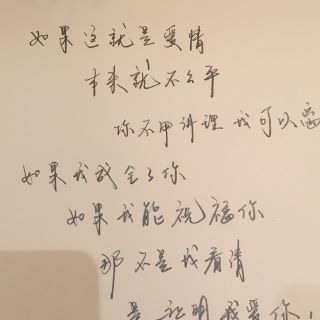 如果这就是爱情
本来就不公平
你不用讲理 我可以离
如果我成全了你
如果我能祝福你
那不是我看清
是证明我爱你